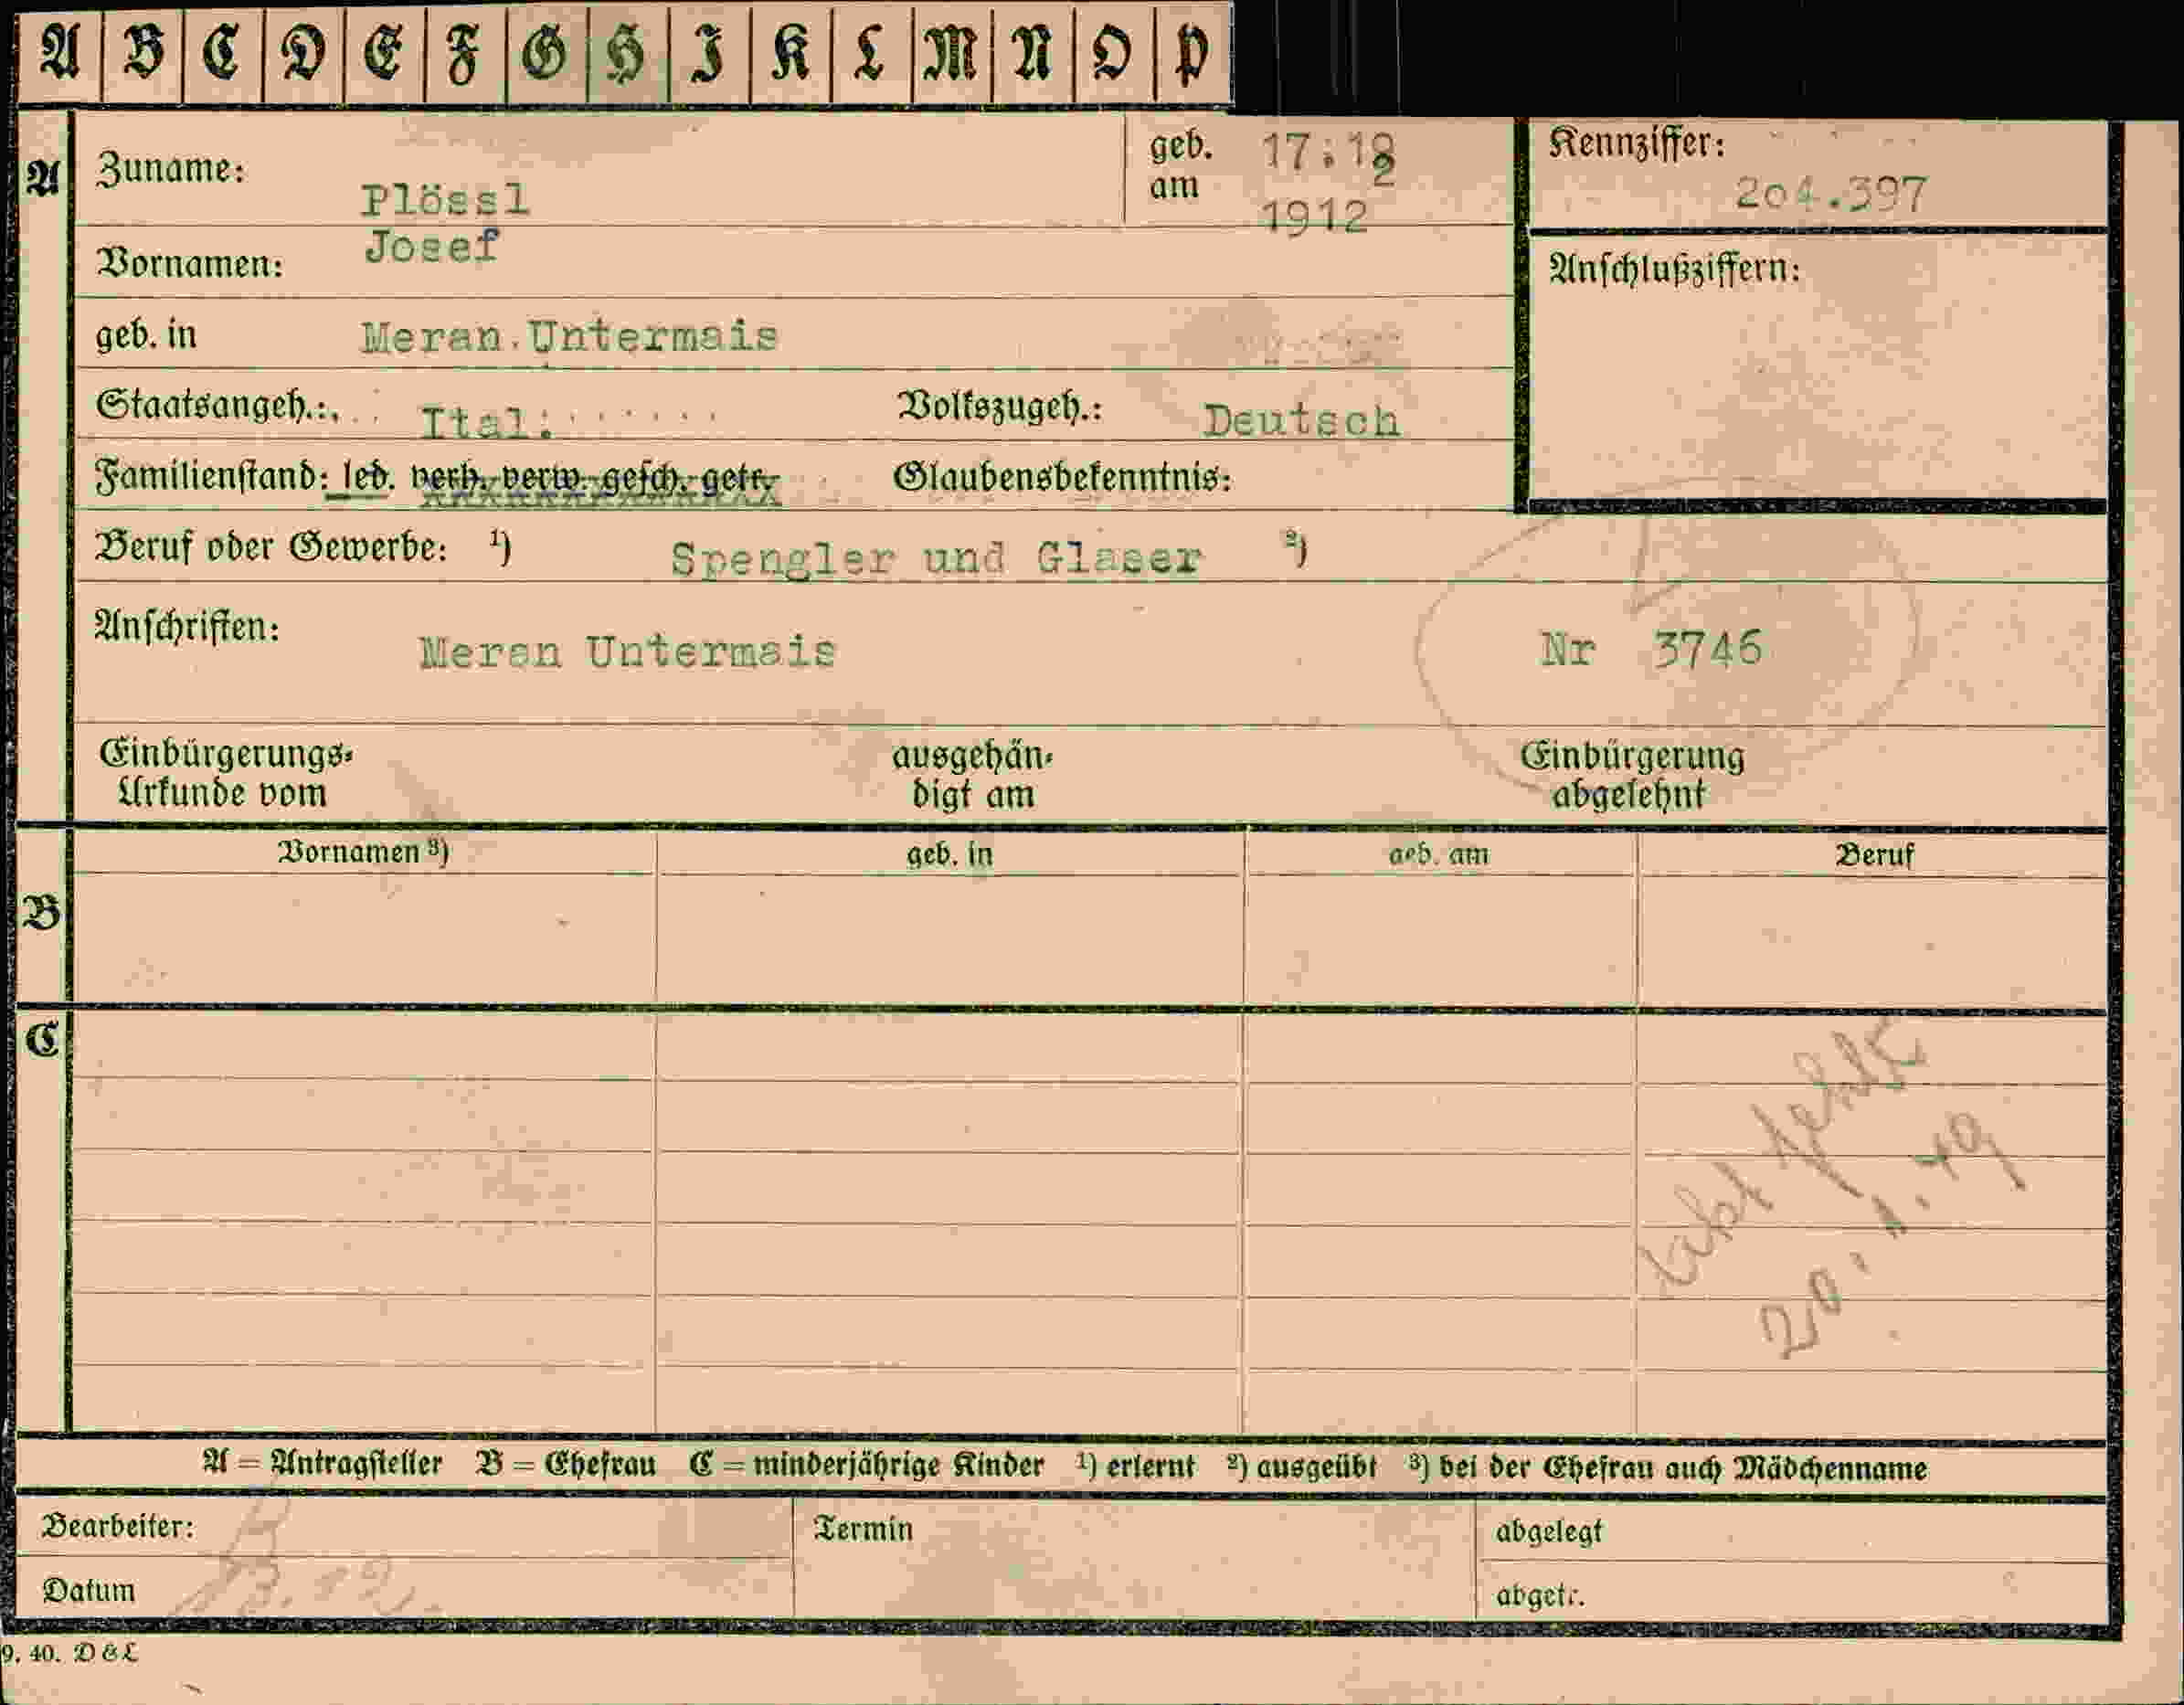 A B C D E F G H I K L M N O P
A Zuname: Plössl geb. am 17.12 1912 Kennziffer: 204.397
Vornamen: Josef
Anschlußziffern:
geb. in Meran.Untermais
Staatsangeh.: Ital. Volkszugeh.: Deutsch
Familienstand: led. verh. verw. gesch. getr. Glaubensbekenntnis:
Beruf oder Gewerbe: ¹) Spengler und Glaser ²)
Anschriften: Meran Untermais Nr 3746
Einbürgerungs-
Urkunde vom
ausgehän-
digt am
Einbürgerung
abgelehnt
B Vornamen ³) geb. in geb. am Beruf
C
Akt fehlt
20.1.49
A = Antragsteller B = Ehefrau C = minderjährige Kinder ¹) erlernt ²) ausgeübt ³) bei der Ehefrau auch Mädchenname
Bearbeiter: Termin abgelegt
Datum abgetr.
9. 40. D & L